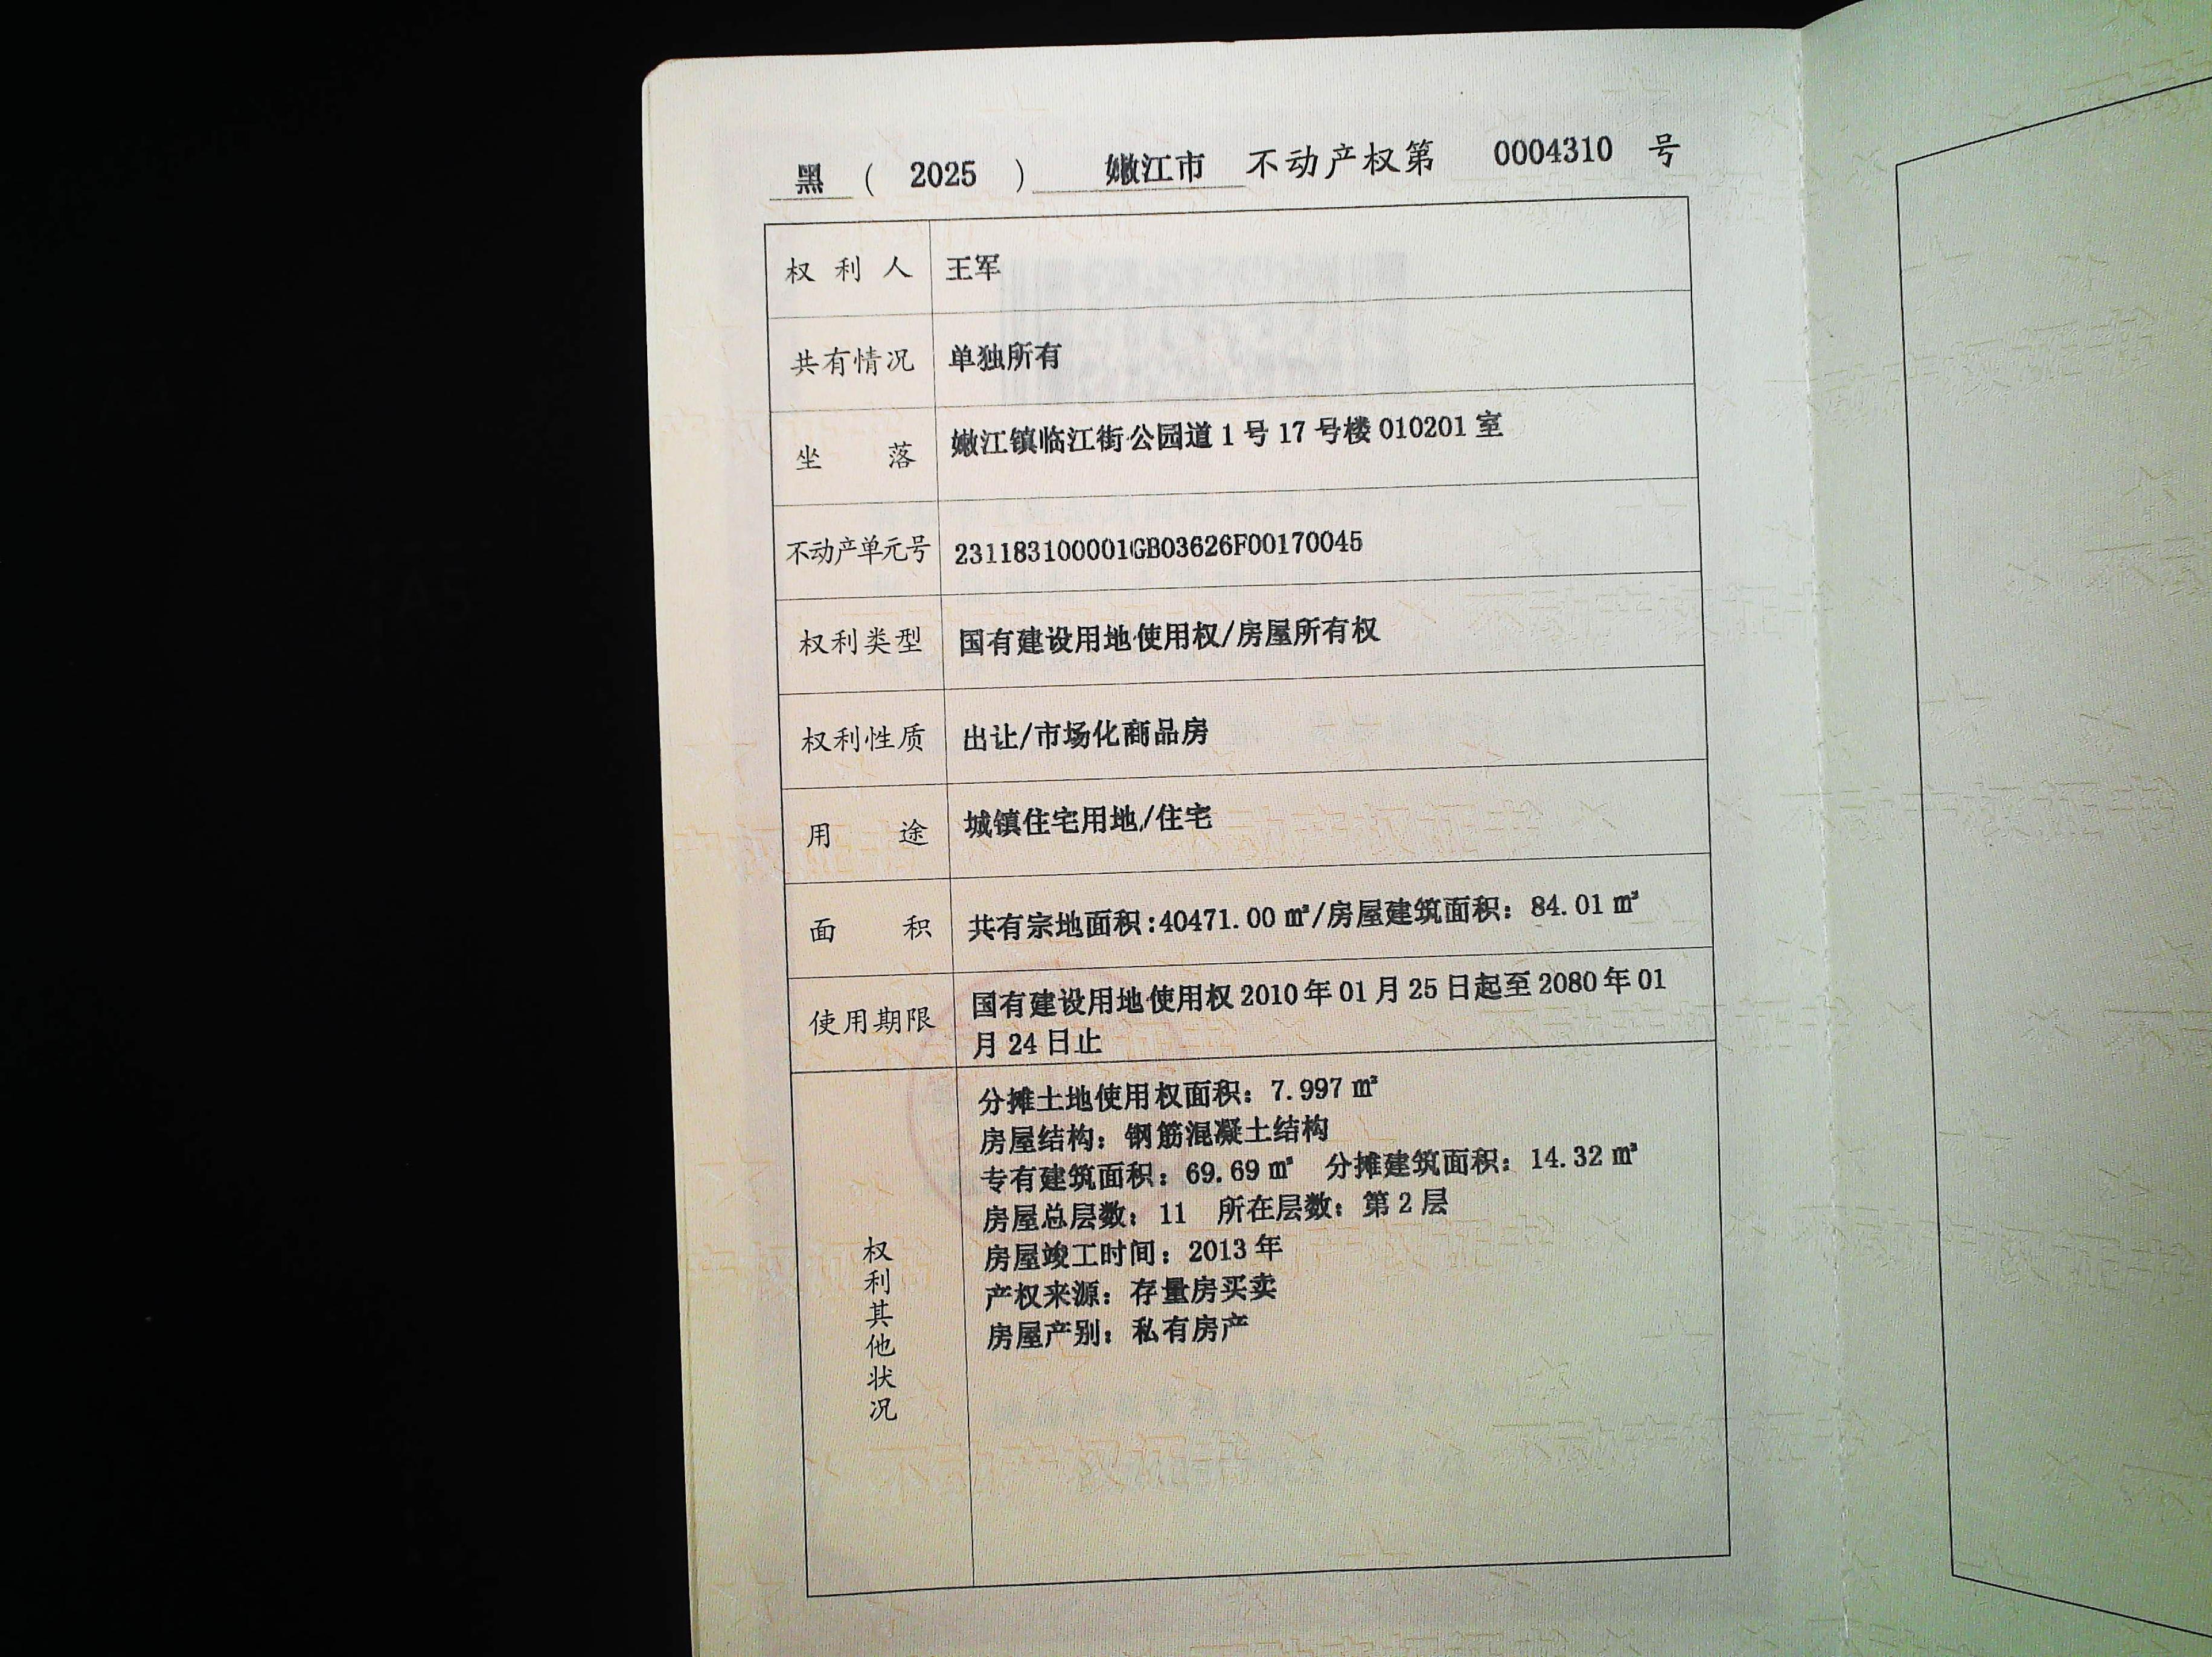 黑 ( 2025 ) 嫩江市 不动产权第 0004310 号
权利人 王军
共有情况 单独所有
坐落 嫩江镇临江街公园道1号17号楼010201室
不动产单元号 231183100001GB03626F00170045
权利类型 国有建设用地使用权/房屋所有权
权利性质 出让/市场化商品房
用途 城镇住宅用地/住宅
面积 共有宗地面积:40471.00㎡/房屋建筑面积：84.01㎡
使用期限 国有建设用地使用权2010年01月25日起至2080年01
月24日止
权利其他状况
分摊土地使用权面积：7.997㎡
房屋结构：钢筋混凝土结构
专有建筑面积：69.69㎡ 分摊建筑面积：14.32㎡
房屋总层数：11 所在层数：第2层
房屋竣工时间：2013年
产权来源：存量房买卖
房屋产别：私有房产